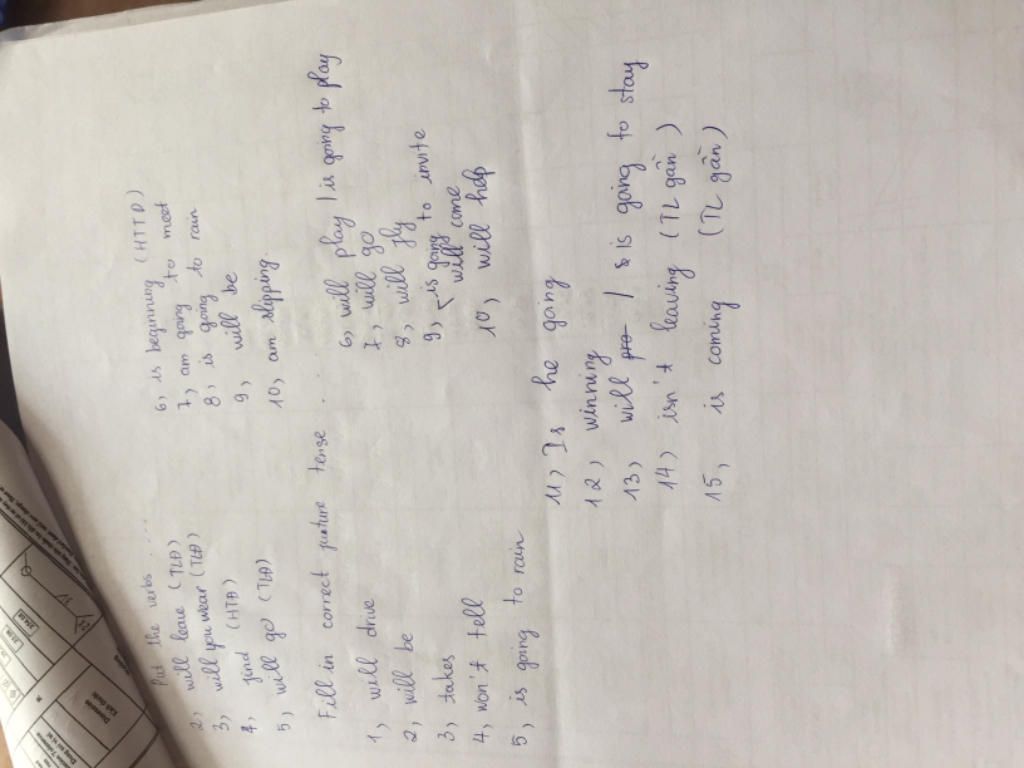 Put the verbs ....
2, will leave (TLĐ)
3, will you wear (TLĐ)
4, find (HTĐ)
5, will go (TLĐ)
6, is beginning (HTTD)
7, am going to meet
8, is going to rain
9, will be
10, am slipping.
Fill in correct funture tense . .
1, will drive
2, will be
3, takes
4, won't tell
5, is going to rain
6, will play / is going to play
7, will go
8, will fly
9, is going to invite
will come
10, will help
11, Is he going
12, winning
13, will / is going to stay
14, isn't leaving (TL gần)
15, is coming (TL gần)